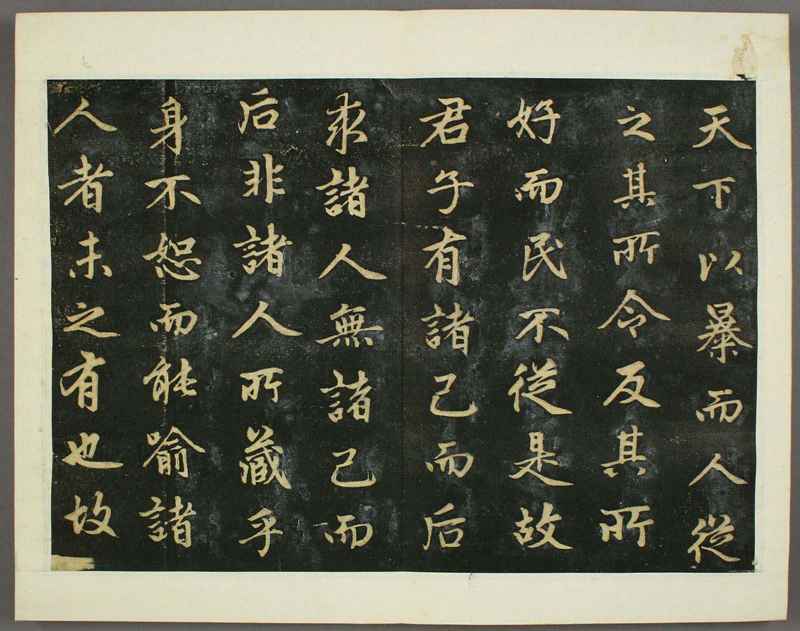 天下以暴而人從
之其所令反其所
好而民不從是故
君子有諸己而后
求諸人無諸己而
后非諸人所藏乎
身不恕而能喻諸
人者未之有也故